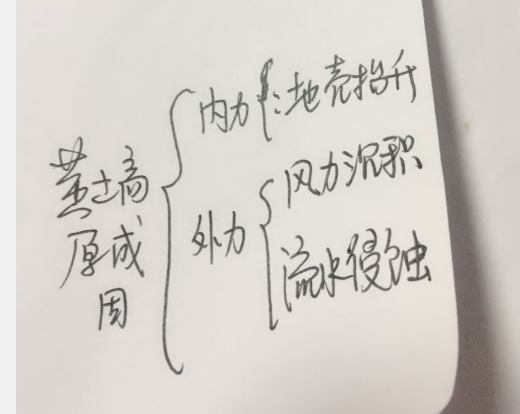 黄土高
原成
因
内力
:地壳抬升
外力
风力沉积
流水侵蚀